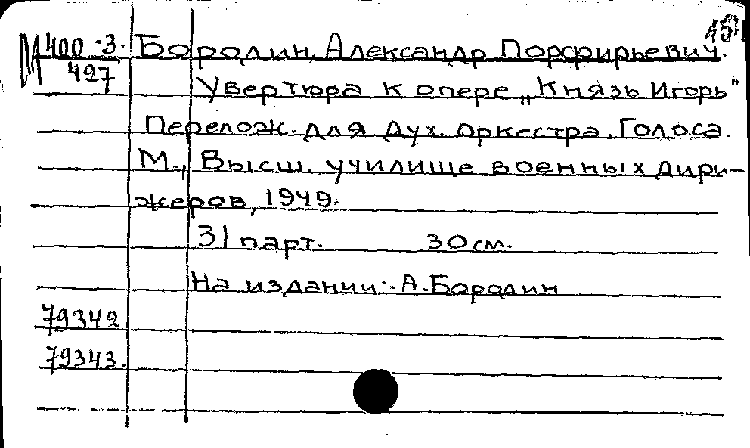 М 400-3. Бородин, Александр Порфирьевич.
427
Увертюра к опере „Князь Игорь"
Перелож. для дух. оркестра. Голоса.
М., Высш. училище военных дири-
жеров, 1949.
31 парт. 30 см.
На издании: А. Бородин
79342
79343.